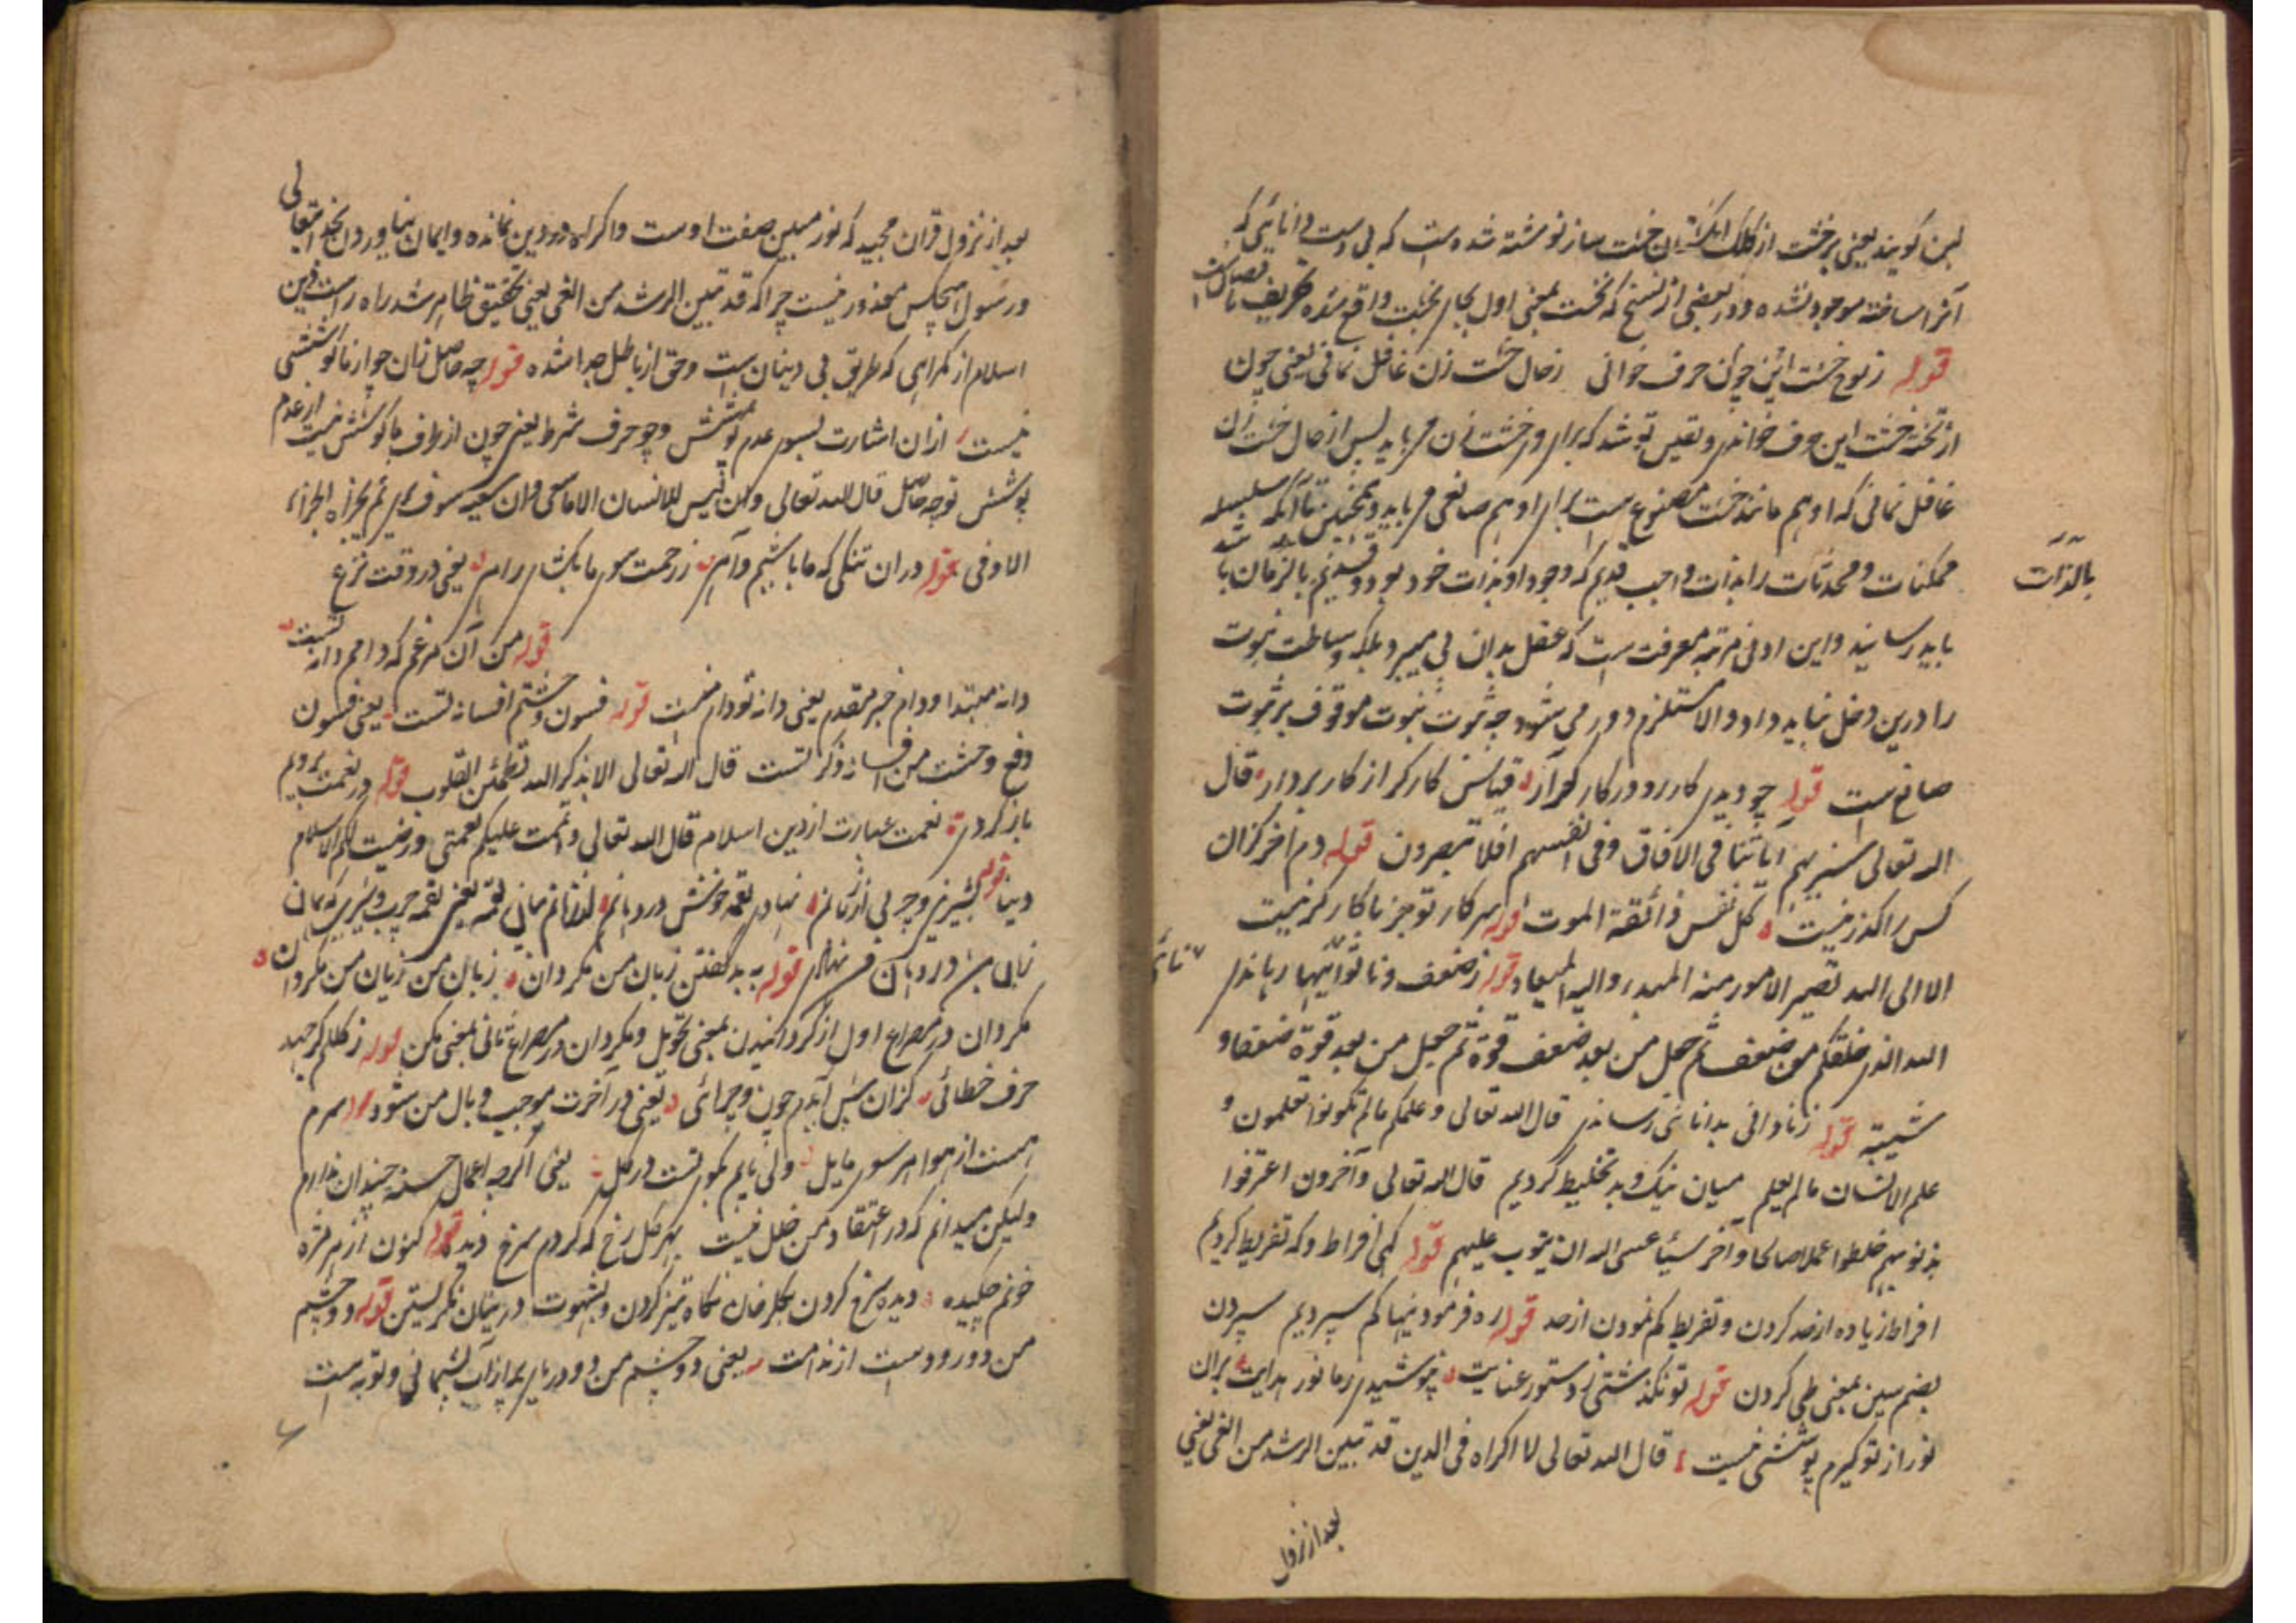 لبن گویند یعنی بر خشت از کلک انگشتان خشت ساز نوشته شده است که بی دست دانائی که
آنرا ساخته موجود نشده و در بعضی از نسخ که نخت بمعنی اول بجای نخبت واقع شده تحریف
قوله ز لوح خشت این چون حرف خوانی ز حال خشت زن غافل نمانی یعنی چون
از تخته خشت این حرف خواندی و یقین تو شد که برای هر خشت زن می باید پس از حال خشت زن
غافل نمانی که او هم مانند خشت مصنوع است برای او هم صانعی می باید و همچنین تا آنکه سلسله
ممکنات و محدثات را بذات واجب قدیم که وجود او بذات خود بود و قدیم بالزمان یا
بالذات
باید رسانید و این ادنی مرتبه معرفت است که عقل بدان پی میبرد بلکه وساطت نبوت
را درین دخل نباید داد و الا مستلزم دور می شود چه ثبوت نبوت موقوف بر ثبوت
صانع است قوله چو دیدی کار رو در کارگر آر قیاس کارگر از کار بردار قال
الله تعالی سنریهم آیاتنا فی الافاق و فی انفسهم افلا تبصرون قوله دم آخر کزان
کس را گذر نیست کل نفس ذائقة الموت قوله سرکار تو جز با کارگر نیست
الا الی الله تصیر الامور منه المبدء والیه المعاد قوله ز ضعف و ناتوانیها رهاند
الله الذی خلقکم من ضعف ثم جعل من بعد ضعف قوة ثم جعل من بعد قوة ضعفا و
شیبة قوله ز نادانی بدانائی رساند قال الله تعالی و علمکم ما لم تکونوا تعلمون و
علم الانسان ما لم یعلم میان نیک و بد تخلیط کردیم قال الله تعالی و آخرون اعترفوا
بذنوبهم خلطوا عملا صالحا و آخر سیئا عسی الله ان یتوب علیهم قوله گهی افراط و گه تفریط کردیم
افراط زیاده از حد کردن و تفریط کم نمودن از حد قوله ره فرمودنیها کم سپردیم سپردن
بضم سین بمعنی طی کردن قوله تو نگذشتی ز دستور عنایت نپوشیدی ز ما نور هدایت بران
نور از تو گیرم پوششی نیست قال الله تعالی لا اکراه فی الدین قد تبین الرشد من الغی یعنی
بعد از نزول
بعد از نزول قران مجید که نور مبین صفت اوست و اکراه در دین نمانده و ایمان نیاوردن بخدای تعالی
و رسول هیچکس معذور نیست چرا که قد تبین الرشد من الغی یعنی تحقیق ظاهر شد راه راست دین
اسلام از گمراهی که طریق بی دینان است و حق از باطل جدا شده قوله چه حاصل زان چو از ما کوششی
نیست از ان اشارت بسوی عدم پوشش و چو حرف شرط یعنی چون از طرف ما کوشش نیست از عدم
پوشش تو چه حاصل قال الله تعالی و ان لیس للانسان الا ما سعی و ان سعیه سوف یری ثم یجزاه الجزاء
الاوفی قوله در ان تنگی که ما باشیم و آهی ز رحمت سوی ما بگشای راهی یعنی در وقت نزع
قوله من آن مرغم که دامم دانه تست
دانه مبتدا و دام خبر مقدم یعنی دانه تو دام منست قوله فسون وحشتم افسانه تست یعنی فسون
دفع وحشت من افسانه ذکر تست قال الله تعالی الا بذکر الله تطمئن القلوب قوله در نعمت برویم
باز کردی نعمت عبارت از دین اسلام قال الله تعالی و اتممت علیکم نعمتی و رضیت لکم الاسلام
دینا قوله بشیرینی و چربی از زبانم نهادی لقمه خوش در دهانم
قوله به بد گفتن زبان من مگردان زبان من زیان من مگردان
مگردان در مصراع اول از گردانیدن بمعنی تحویل و مگردان در مصراع ثانی بمعنی مکن قوله ز کلکم گر جهد
حرف خطائی کزان پیش آیدم چون و چرائی یعنی در آخرت موجب وبال من شود قوله سرم
هست از هوا هر سوی مایل ولی پایم بکوی تست در گل یعنی اگرچه اعمال حسنه چندان ندارم
و لیکن میدانم که در اعتقاد من خلل نیست بهر گل رخ که کردم سرخ دیده قوله کنون از هر مژه
خونم چکیده دیده سرخ کردن بگلرخان نگاه تیز کردن و بشهوت در بتان نگریستن قوله دو چشم
من دو رود است از ندامت یعنی دو چشم من دو دریای پر از آب پشیمانی و توبه است